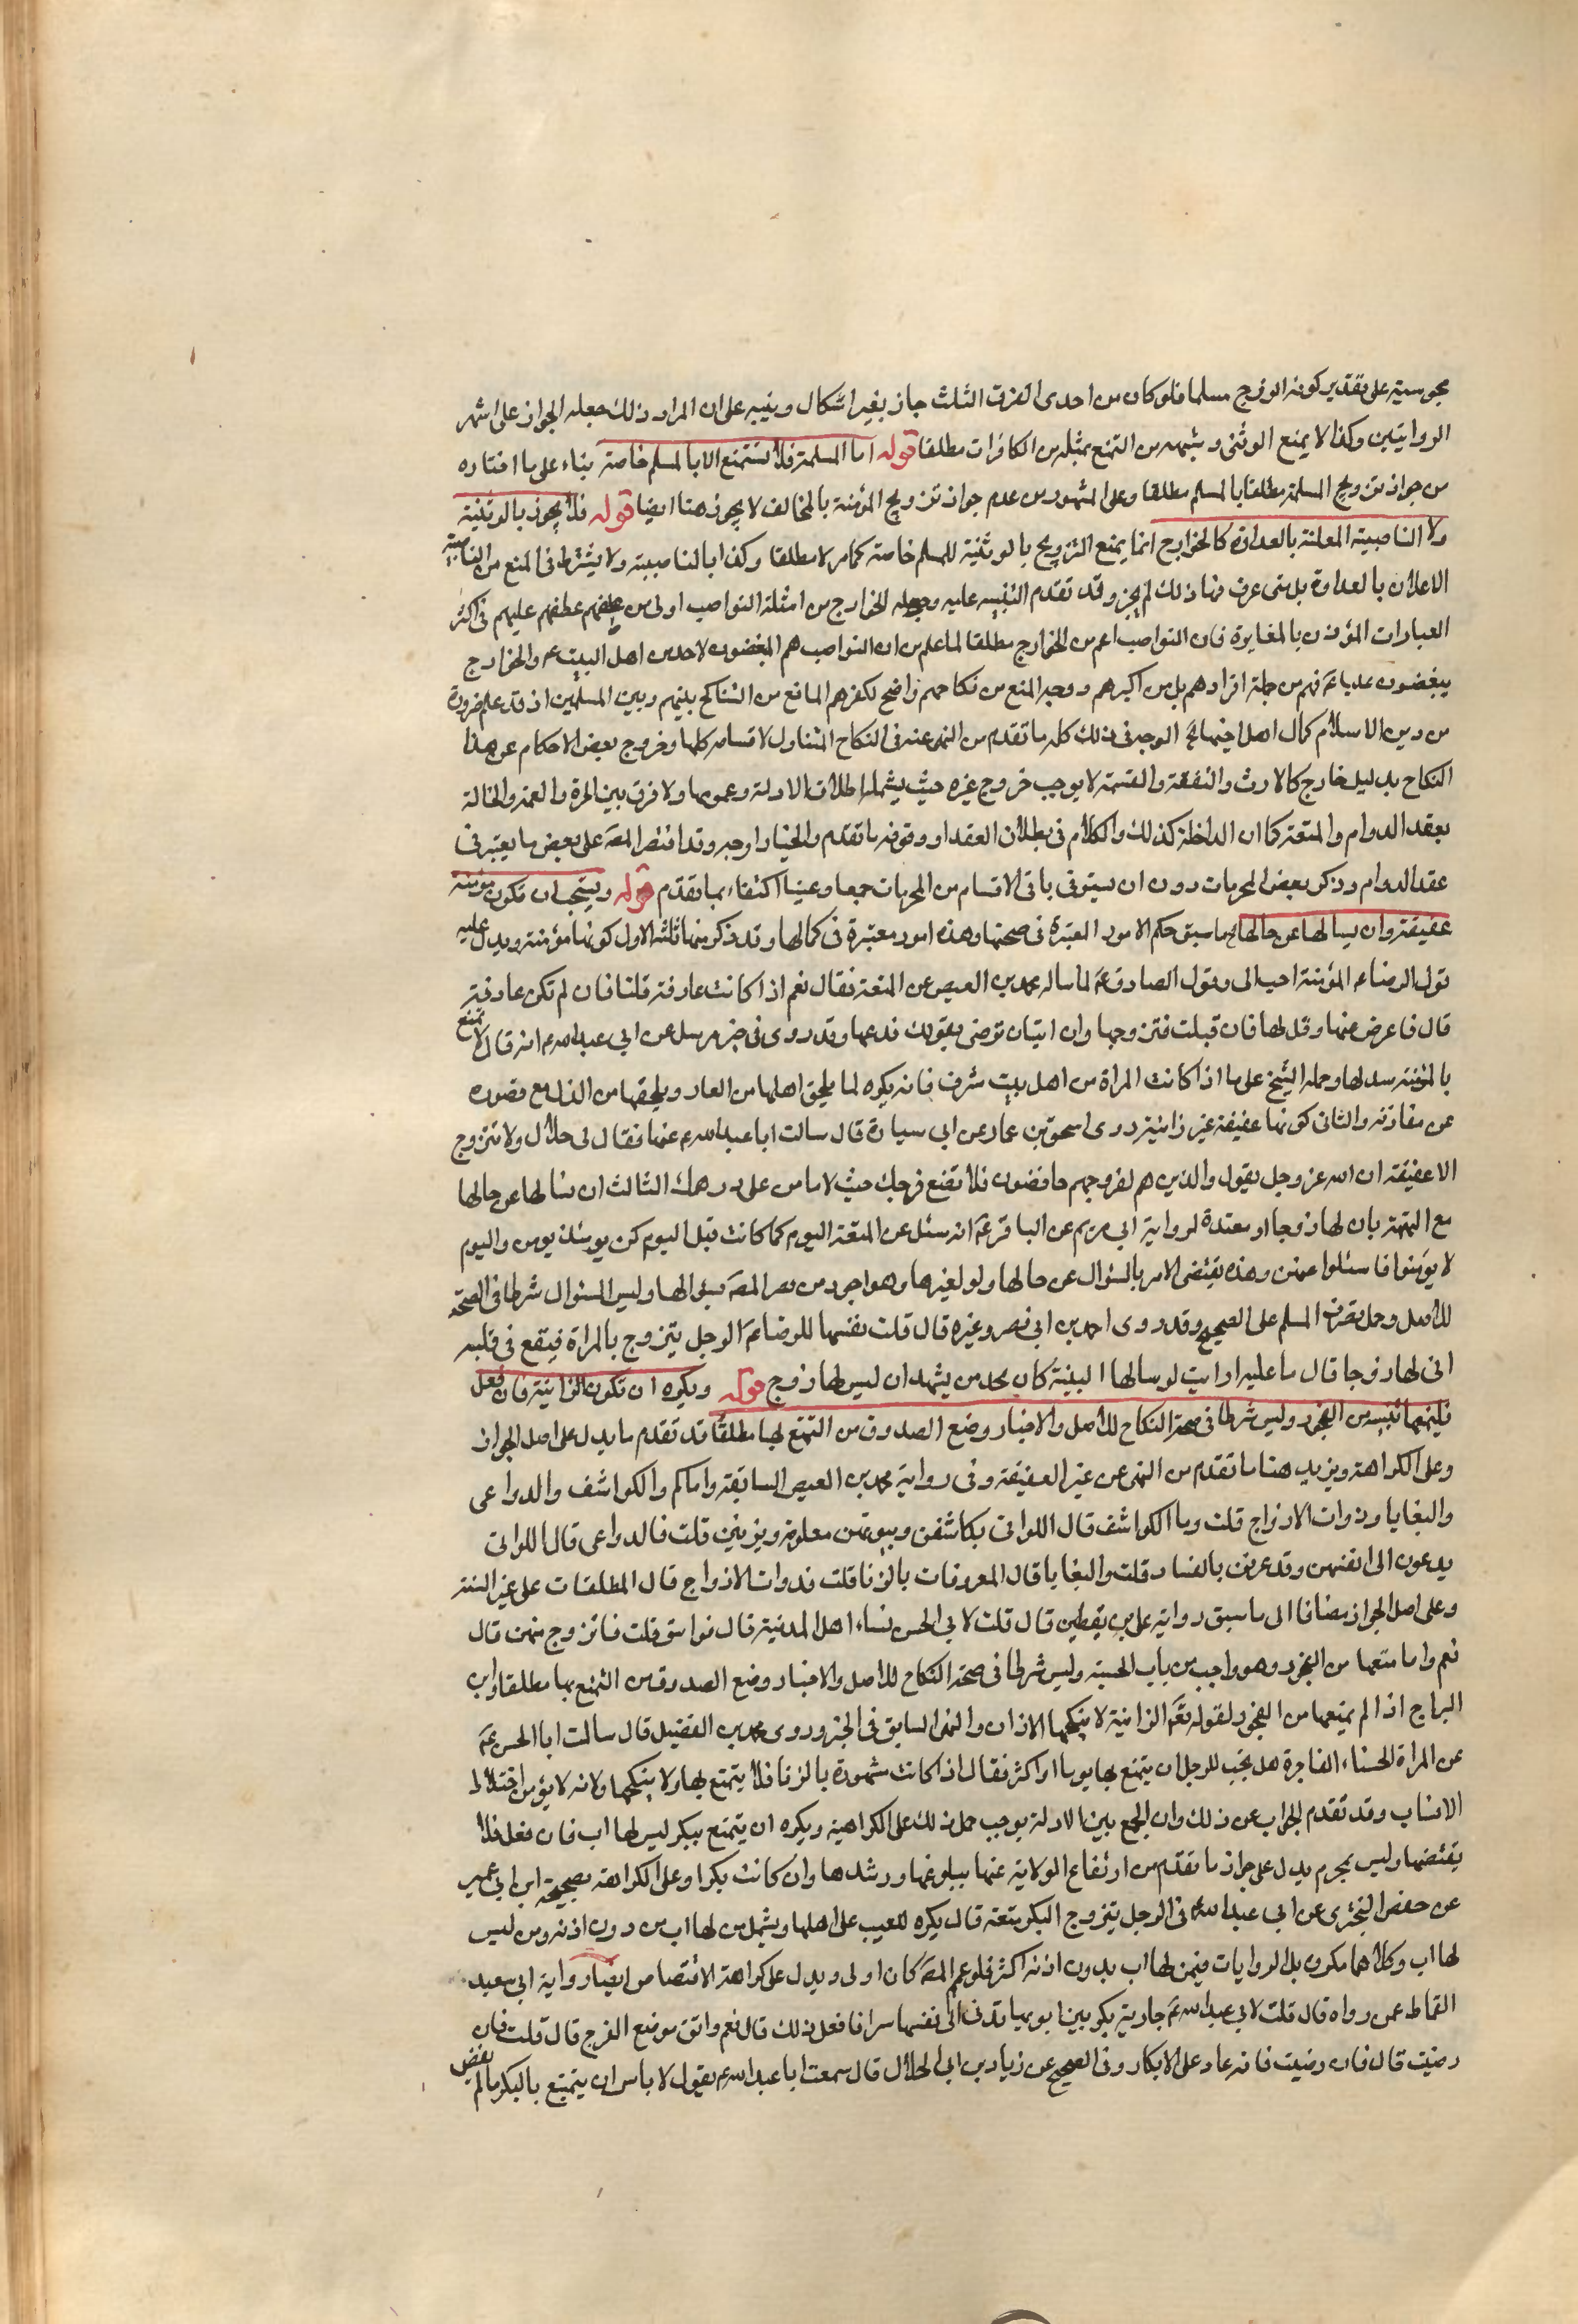 مجوسية على تقدير كونه الزوج مسلما فلو كان من احدى الفرق الثلث جاز بغير اشكال وينبه على ان المراد ذلك جعله الجواز على اشهر
الروايتين وكذا لا يمنع الوثنى وشبهه من التمتع بمثله من الكافرات مطلقا قوله اما المسلمة فلا تستمتع الا بالمسلم خاصة بناء على ما اختاره
من جواز تزويج المسلمة مطلقا بالمسلم مطلقا وعلى المشهور من عدم جواز تزويج المؤمنة بالمخالف لا يجوز هنا ايضا قوله فلا يجوز بالوثنية
ولا الناصبية المعلنة بالعداوة كالخوارج انما يمنع التزويج بالوثنية للمسلم خاصة كما مر لا مطلقا وكذا بالناصبية ولا يشترط فى المنع من الناصبية
الاعلان بالعداوة بل متى عرف منها ذلك لم يجز وقد تقدم التنبيه عليه وجعله الخوارج من امثلة النواصب اولى من عطفهم عليهم فى اكثر
العبارات المؤذن بالمغايرة فان النواصب اعم من الخوارج مطلقا لما علم من ان النواصب هم المبغضون لاحد من اهل البيت ع والخوارج
يبغضون عليا ع فهم من جملة افرادهم بل من اكبرهم ووجه المنع من نكاحهم واضح لكفرهم المانع من التناكح بينهم وبين المسلمين اذ قد علم ضرورة
من دين الاسلام كمال اهل اخيها الخ الوجه فى ذلك كله ما تقدم من النهى عنه فى النكاح المتناول لاقسامه كلها وخروج بعض الاحكام عن هذا
النكاح بدليل خارج كالارث والنفقة والقسمة لا يوجب خروج غيره حيث يشمله اطلاق الادلة وعمومها ولا فرق بين الحرة والعمة والخالة
بعقد الدوام والمتعة كما ان الداخلة كذلك والكلام فى بطلان العقد او وقوفه ما تقدم والخيار اوجه وقد اقتصر المص على بعض ما يعتبر فى
عقد الدوام وذكر بعض المحرمات دون ان يستوفى باقى الاقسام من المحرمات جمعا وعينا اكتفاء بما تقدم قوله ويستحب ان تكون مؤمنة
عفيفة وان يسالها عن حالها الخ ما سبق حكم الامور المعتبرة فى صحتها وهذه امور معتبرة فى كمالها وقد ذكر منها ثلثة الاول كونها مؤمنة ويدل عليه
قول الرضا ع المؤمنة احب الى وقول الصادق ع لما ساله محمد بن العيص عن المتعة فقال نعم اذا كانت عارفة قلنا فان لم تكن عارفة
قال فاعرض عنها وقل لها فان قبلت فتزوجها وان ابت ان ترضى بقولك فدعها وقد روى فى خبر مرسل عن ابى عبد الله ع انه قال لا تمتع
بالمؤمنة سد لها وحمله الشيخ على ما اذا كانت المراة من اهل بيت شرف فانه يكره لما يلحق اهلها من العار ويلحقها من الذل مع قصوره
عن مقاومة والثانى كونها عفيفة غير زانية روى اسحق بن عمار عن ابى سيارة قال سالت ابا عبد الله ع عنها فقال لى حلال ولا تتزوج
الا عفيفة ان الله عز وجل يقول والذين هم لفروجهم حافظون فلا تضع فرجك حيث لا تامن على درهمك الثالث ان يسالها عن حالها
مع التهمة بان لها زوجا او معتدة لرواية ابى مريم عن الباقر ع انه سئل عن المتعة اليوم كما كانت قبل اليوم كن يومئذ يؤمن واليوم
لا يؤمنوا فاسئلوا عنهن وهذه يقتضى الامر بالسئوال عن حالها ولو لغيرها وهو اجود من نص المص بسؤالها وليس السئوال شرطا فى الصحة
للاصل وحمل تصرف المسلم على الصحيح وقد روى احمد بن ابى نصر وغيره قال قلت نفسها للرضا ع الرجل يتزوج بالمراة فيقع فى قلبه
انى لها زوجا قال ما عليه ارايت لو سالها البينة كان يجد من يشهد ان ليس لها زوج قوله ويكره ان تكون الزانية فان فعل
فليمنعها من الفجور وليس شرطا فى صحة النكاح للاصل والاخبار ومنع الصدوق من التمتع بها مطلقا قد تقدم ما يدل على اصل الجواز
وعلى الكراهة ويزيد هنا ما تقدم من النهى عن غير العفيفة وفى رواية محمد بن العيص السابقة واياكم والكواشف والدواعى
والبغايا وذوات الازواج قلت وما الكواشف قال اللواتى يكاشفن وبيوتهن معلومة ويزنين قلت فالدواعى قال اللواتى
يدعون الى انفسهن وقد عرفن بالفساد قلت والبغايا قال المعروفات بالزنا قلت فذوات الازواج قال المطلقات على غير السنة
وعلى اصل الجواز مضافا الى ما سبق رواية على بن يقطين قال قلت لابى الحسن نساء اهل المدينة قال فواسق قلت فاتزوج منهن قال
نعم واما منعها من الفجور وهو واجب من باب الحسبة وليس شرطا فى صحة النكاح للاصل والاخبار ومنع الصدوق من التمتع بها مطلقا وابن
البراج اذا لم يمنعها من الفجور لقوله تع الزانية لا ينكحها الا زان والنهى السابق فى الخبر وروى محمد بن الفضيل قال سالت ابا الحسن ع
عن المراة الحسناء الفاجرة هل يجب للرجل ان يتمتع بها يوما او اكثر فقال اذا كانت مشهورة بالزنا فلا يتمتع بها ولا ينكحها ولانه لا يؤمن اختلاط
الانساب وقد تقدم الجواب عن ذلك وان الجمع بين الادلة يوجب حمل ذلك على الكراهية ويكره ان يتمتع ببكر ليس لها اب فان فعل فلا
يفتضها وليس بمحرم يدل على جواز ما تقدم من ارتفاع الولاية عنها ببلوغها ورشدها وان كانت بكرا وعلى الكراهة صحيحة ابن ابى عمير
عن حفص البخترى عن ابى عبد الله ع فى الرجل يتزوج البكر متعة قال يكره للعيب على اهلها ويشمل من لها اب من دون اذنه ومن ليس
لها اب وكلاهما مكروه بل الروايات فيمن لها اب بدون اذنه اكثر فلو عمم المص كان اولى ويدل على كراهة الافتضاض ايضا رواية ابى سعيد
القماط عمن رواه قال قلت لابى عبد الله ع جارية بكر بين ابويها تدعونى الى نفسها سرا فافعل ذلك قال نعم واتق موضع الفرج قال قلت فان
رضيت قال فان رضيت فانه عار على الابكار وفى الصحيح عن زياد بن ابى الحلال قال سمعت ابا عبد الله ع يقول لا باس ان يتمتع بالبكر ما لم يفض